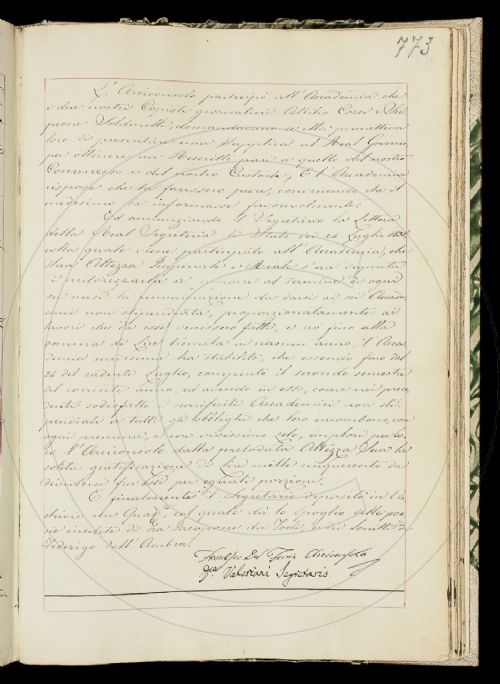 773
L'Arciconsolo partecipò all'Accademia che
i due nostri Copisti giornalieri Attilio Corsi e Sci-
pione Soldaretti, domandavano se Ella permetteva
loro di presentare una Supplica al Real Governo
per ottenere un Rescritto pari a quello del nostro
Commesso e del nostro Custode; E l'Accademia
rispose che la facessero pure, convenendo che il
medesimo la informasse favorevolmente.
Ed annunziando il Segretario la Lettera
della Real Segreteria di Stato dei 24 Luglio
colla quale viene partecipato all'Accademia, che
Sua Altezza Imperiale e Reale s'era degnata
d'autorizzarla a
la remunerazione da darsi ai
non stipendiati, proporzionatamente ai
lavori che da essi venissero fatti, e ciò fino alla
somma di Lire tremila in ciascun anno, l'Acca-
demia medesima ha stabilito, che essendo fino dal
24 del cadente Luglio, compiuto il secondo semestre
del corrente anno, ed avendo in esso, come nei prece
denti sodisfatto i Accademici non sti-
pendiati a tutti gli obblighi che loro incombono, con
ogni premura, e con moltissimo zelo, implori per lo-
ro l'Arciconsolo dalla prelodata Altezza Sua la
solita gratificazione di Lire mille cinquecento da
dividersi fra essi per eguali porzioni.
E finalmente il Segretario depositò in
nel quale dà lo spoglio delle poe-
sie inedite di Fra Jacopone da Todi, e dei Sonetti di
Federigo dell'Ambra.
Arciconsolo
Valeriani Segretario